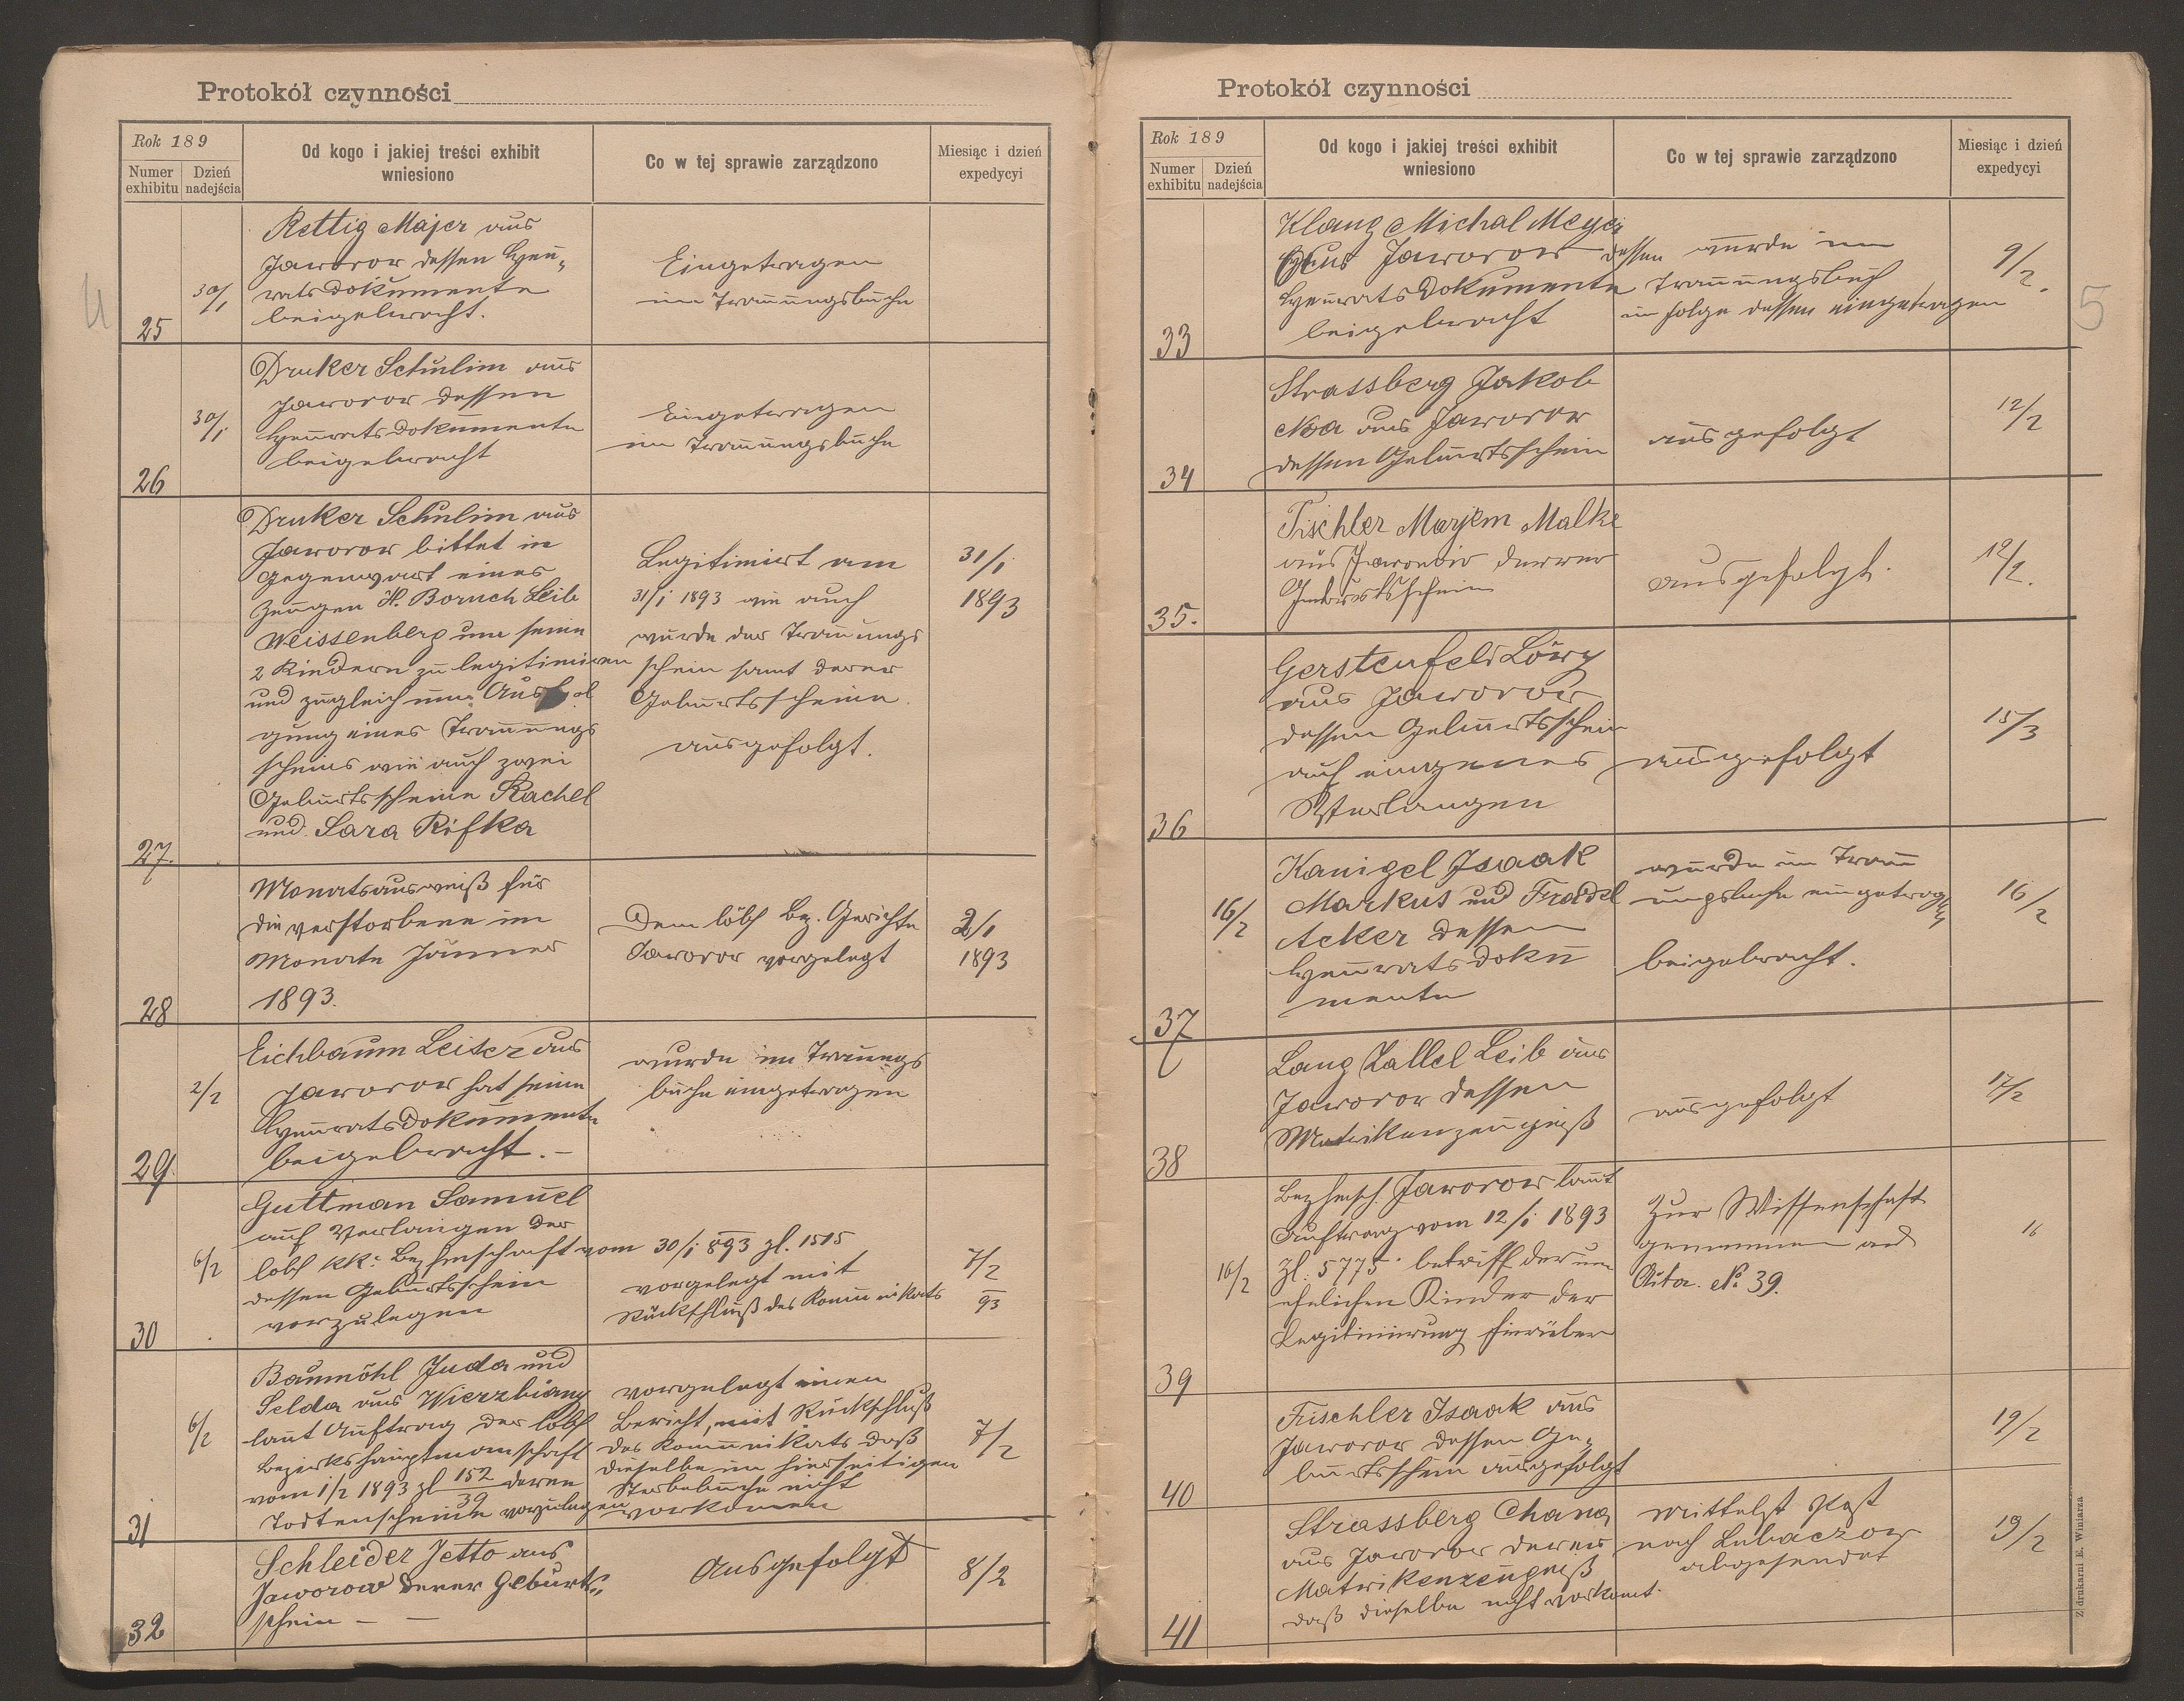 Protokół czynności
Rok 189
Numer exhibitu
Dzień nadejścia
Od kogo i jakiej treści exhibit wniesiono
Co w tej sprawie zarządzono
Miesiąc i dzień expedycyi
4
Rettig Majer aus
Jaworow dessen Heu-
rats Dokumente
beigebracht.
25
30/1
Eingetragen
im Trauungsbuche
Druker Schulim aus
Jaworow dessen
Heurats Dokumente
beigebracht
26
30/1
Eingetragen
im Trauungsbuche
Druker Schulim aus
Jaworow bittet in
Gegenwart eines
Zeugen H. Boruch Leib
Weissenberg um seine
2 Kindern zu legitimiren
und zugleich um
gung eines Trauungs
scheins wie auch zwei
Geburtsscheine Rachel
und Sara Rifka
27.
Legitimirt am
31/1 1893 wie auch
wurde der Trauungs
schein samt derer
Geburtsscheine
ausgefolgt.
31/1
1893
Monatsausweiß für
die verstorbene im
Monate Jänner
1893.
28
Dem löbl Bz. Gerichte
Jaworow vorgelegt
2/1
1893
Eichbaum Leiser aus
Jaworow hat seine
Heurats Dokumente
beigebracht. –
29.
2/2
wurde im Trauungs
buche eingetragen
Guttman Samuel
auf Verlangen der
löbl KK. Bezhmschaft vom 30/1 893 zl. 1515
dessen Geburtsschein
vorzulegen
30
6/2
vorgelegt mit
Rückschluß des Komunikats
7/2
93
Baumöhl Juda und
Selda aus Wierzbiany
laut Auftrag der löbl
Bezirkshauptmanschaft
vom 1/2 1893 zl 152/39 deren
Todtenscheine vorzulegen
31
6/2
vorgelegt einen
Bericht, mit Rückschluß
des Komunikats daß
dieselbe im hierseitigen
Sterbebuche nicht
vorkomen
7/2
Schleider Jetto aus
Jaworow derer Geburts-
schein – –
32
Ausgefolgt
8/2
Protokół czynności
Rok 189
Numer exhibitu
Dzień nadejścia
Od kogo i jakiej treści exhibit wniesiono
Co w tej sprawie zarządzono
Miesiąc i dzień expedycyi
5
Klang Michal Meyer
aus Jaworow dessen
Heurats Dokumente
beigebracht
33
wurde im
Trauungsbuch
in folge dessen eingetragen
9/2.
Strassberg Jakob
aus Jaworow
dessen Geburtsschein
34
ausgefolgt
12/2
Tischler Marjem Malke
aus Jaworow derer
Geburtsschein
35.
ausgefolgt.
12/2.
Gerstenfeld Löwy
aus Jaworow
dessen Geburtsschein
auf eigenes
Verlangen
36
ausgefolgt
15/3
Kanigel Isaak
Markus und Fradel
Acker dessen
Heurats Doku
mente
37
16/2
wurde im Trau
ungsbuche eingetragen
beigebracht.
16/2
Lang Kallel Leib aus
Jaworow dessen
Matrikenzeugniß
38
ausgefolgt
17/2
Bezhmsch. Jaworow laut
Auftrag vom 12/1 1893
Zl. 5775 betriff der un
ehelichen Kinder der
Legitimirung hierüber
39
16/2
Zur Wissenschaft
genommen ad
No 39.
16
Tischler Isaak aus
Jaworow dessen Ge-
burtsschein ausgefolgt
40
19/2
Strassberg Chana
aus Jaworow deren
Matrikenzeugniß
daß dieselbe nicht vorkomt.
41
mittelst Post
nach Lubaczow
abgesendet
19/2
Z drukarni E. Winiarza